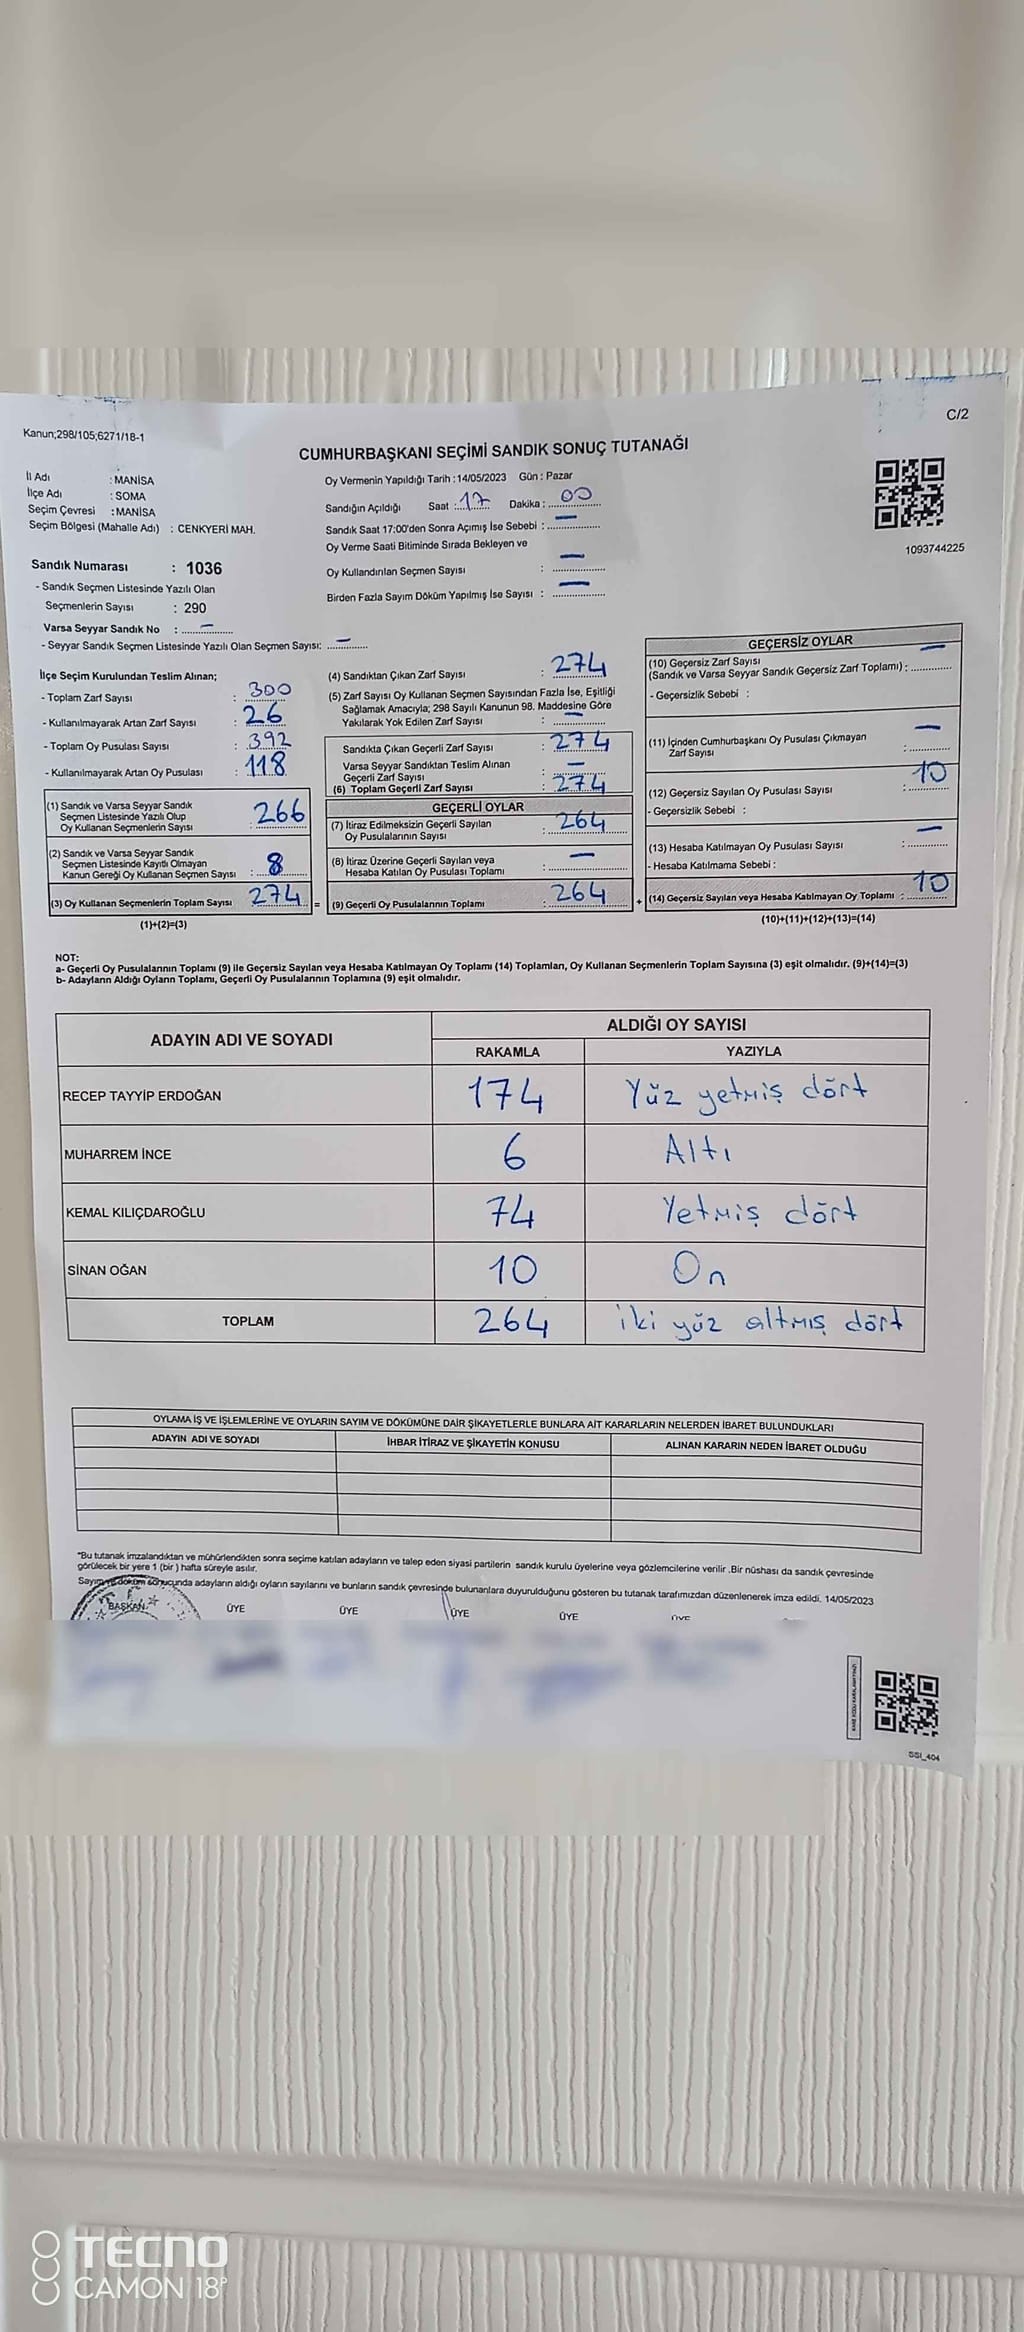 Kanun;298/105;6271/18-1
C/2
CUMHURBAŞKANI SEÇİMİ SANDIK SONUÇ TUTANAĞI
İl Adı : MANİSA
İlçe Adı : SOMA
Seçim Çevresi : MANİSA
Seçim Bölgesi (Mahalle Adı) : CENKYERİ MAH.
Oy Vermenin Yapıldığı Tarih : 14/05/2023 Gün : Pazar
Sandığın Açıldığı Saat : 17 Dakika : 00
Sandık Saat 17:00'den Sonra Açımış İse Sebebi : —
Oy Verme Saati Bitiminde Sırada Bekleyen ve
Oy Kullandırılan Seçmen Sayısı : —
Birden Fazla Sayım Döküm Yapılmış İse Sayısı : —
1093744225
Sandık Numarası : 1036
- Sandık Seçmen Listesinde Yazılı Olan
Seçmenlerin Sayısı : 290
Varsa Seyyar Sandık No : —
- Seyyar Sandık Seçmen Listesinde Yazılı Olan Seçmen Sayısı: —
İlçe Seçim Kurulundan Teslim Alınan;
- Toplam Zarf Sayısı : 300
- Kullanılmayarak Artan Zarf Sayısı : 26
- Toplam Oy Pusulası Sayısı : 392
- Kullanılmayarak Artan Oy Pusulası : 118
(1) Sandık ve Varsa Seyyar Sandık
Seçmen Listesinde Yazılı Olup
Oy Kullanan Seçmenlerin Sayısı : 266
(2) Sandık ve Varsa Seyyar Sandık
Seçmen Listesinde Kayıtlı Olmayan
Kanun Gereği Oy Kullanan Seçmen Sayısı : 8
(3) Oy Kullanan Seçmenlerin Toplam Sayısı : 274 =
(1)+(2)=(3)
(4) Sandıktan Çıkan Zarf Sayısı : 274
(5) Zarf Sayısı Oy Kullanan Seçmen Sayısından Fazla İse, Eşitliği
Sağlamak Amacıyla; 298 Sayılı Kanunun 98. Maddesine Göre
Yakılarak Yok Edilen Zarf Sayısı : —
Sandıkta Çıkan Geçerli Zarf Sayısı : 274
Varsa Seyyar Sandıktan Teslim Alınan
Geçerli Zarf Sayısı : —
(6) Toplam Geçerli Zarf Sayısı : 274
GEÇERLİ OYLAR
(7) İtiraz Edilmeksizin Geçerli Sayılan
Oy Pusulalarının Sayısı : 264
(8) İtiraz Üzerine Geçerli Sayılan veya
Hesaba Katılan Oy Pusulası Toplamı : —
(9) Geçerli Oy Pusulalarının Toplamı : 264 +
GEÇERSİZ OYLAR
(10) Geçersiz Zarf Sayısı
(Sandık ve Varsa Seyyar Sandık Geçersiz Zarf Toplamı) : —
- Geçersizlik Sebebi :
(11) İçinden Cumhurbaşkanı Oy Pusulası Çıkmayan
Zarf Sayısı : —
(12) Geçersiz Sayılan Oy Pusulası Sayısı : 10
- Geçersizlik Sebebi :
(13) Hesaba Katılmayan Oy Pusulası Sayısı : —
- Hesaba Katılmama Sebebi :
(14) Geçersiz Sayılan veya Hesaba Katılmayan Oy Toplamı : 10
(10)+(11)+(12)+(13)=(14)
NOT:
a- Geçerli Oy Pusulalarının Toplamı (9) ile Geçersiz Sayılan veya Hesaba Katılmayan Oy Toplamı (14) Toplamları, Oy Kullanan Seçmenlerin Toplam Sayısına (3) eşit olmalıdır. (9)+(14)=(3)
b- Adayların Aldığı Oyların Toplamı, Geçerli Oy Pusulalarının Toplamına (9) eşit olmalıdır.
ADAYIN ADI VE SOYADI ALDIĞI OY SAYISI
RAKAMLA YAZIYLA
RECEP TAYYİP ERDOĞAN 174 Yüz yetmiş dört
MUHARREM İNCE 6 Altı
KEMAL KILIÇDAROĞLU 74 Yetmiş dört
SİNAN OĞAN 10 On
TOPLAM 264 iki yüz altmış dört
OYLAMA İŞ VE İŞLEMLERİNE VE OYLARIN SAYIM VE DÖKÜMÜNE DAİR ŞİKAYETLERLE BUNLARA AİT KARARLARIN NELERDEN İBARET BULUNDUKLARI
ADAYIN ADI VE SOYADI İHBAR İTİRAZ VE ŞİKAYETİN KONUSU ALINAN KARARIN NEDEN İBARET OLDUĞU
*Bu tutanak imzalandıktan ve mühürlendikten sonra seçime katılan adayların ve talep eden siyasi partilerin sandık kurulu üyelerine veya gözlemcilerine verilir .Bir nüshası da sandık çevresinde
görülecek bir yere 1 (bir ) hafta süreyle asılır.
Sayım ve döküm sonucunda adayların aldığı oyların sayılarını ve bunların sandık çevresinde bulunanlara duyurulduğunu gösteren bu tutanak tarafımızdan düzenlenerek imza edildi. 14/05/2023
BAŞKAN ÜYE ÜYE ÜYE ÜYE ÜYE
SSI_404
TECNO
CAMON 18P